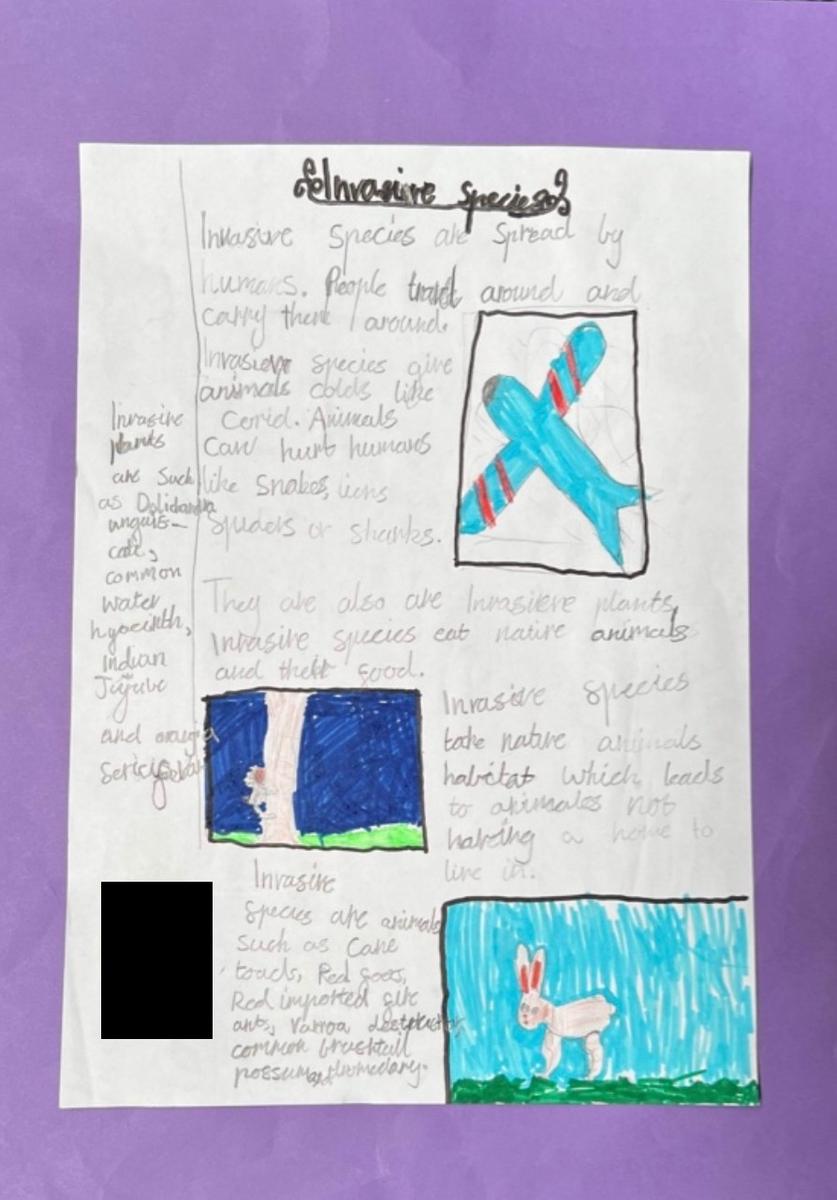 Invasive Species
Invasive Species are Spread by
humans. People travel around and
carry them around.
Invasive species give
animals colds like
Covid. Animals
can hurt humans
like Snakes, lions
Spiders or sharks.
They are also are Invasive plants,
Invasive species eat native animals
and their food.
Invasive
plants
are such
as Dolichandra
unguis-
cati,
common
Water
hyacinth,
Indian
Jujube
and araujia
Invasive Species
take native animals
habitat which leads
to animales not
having a home to
live in.
Invasive
Species are animals
Such as Cane
toads, Red foxes,
Red imported fire
ants, Varroa destructor,
common brushtail
possum and dromedary.